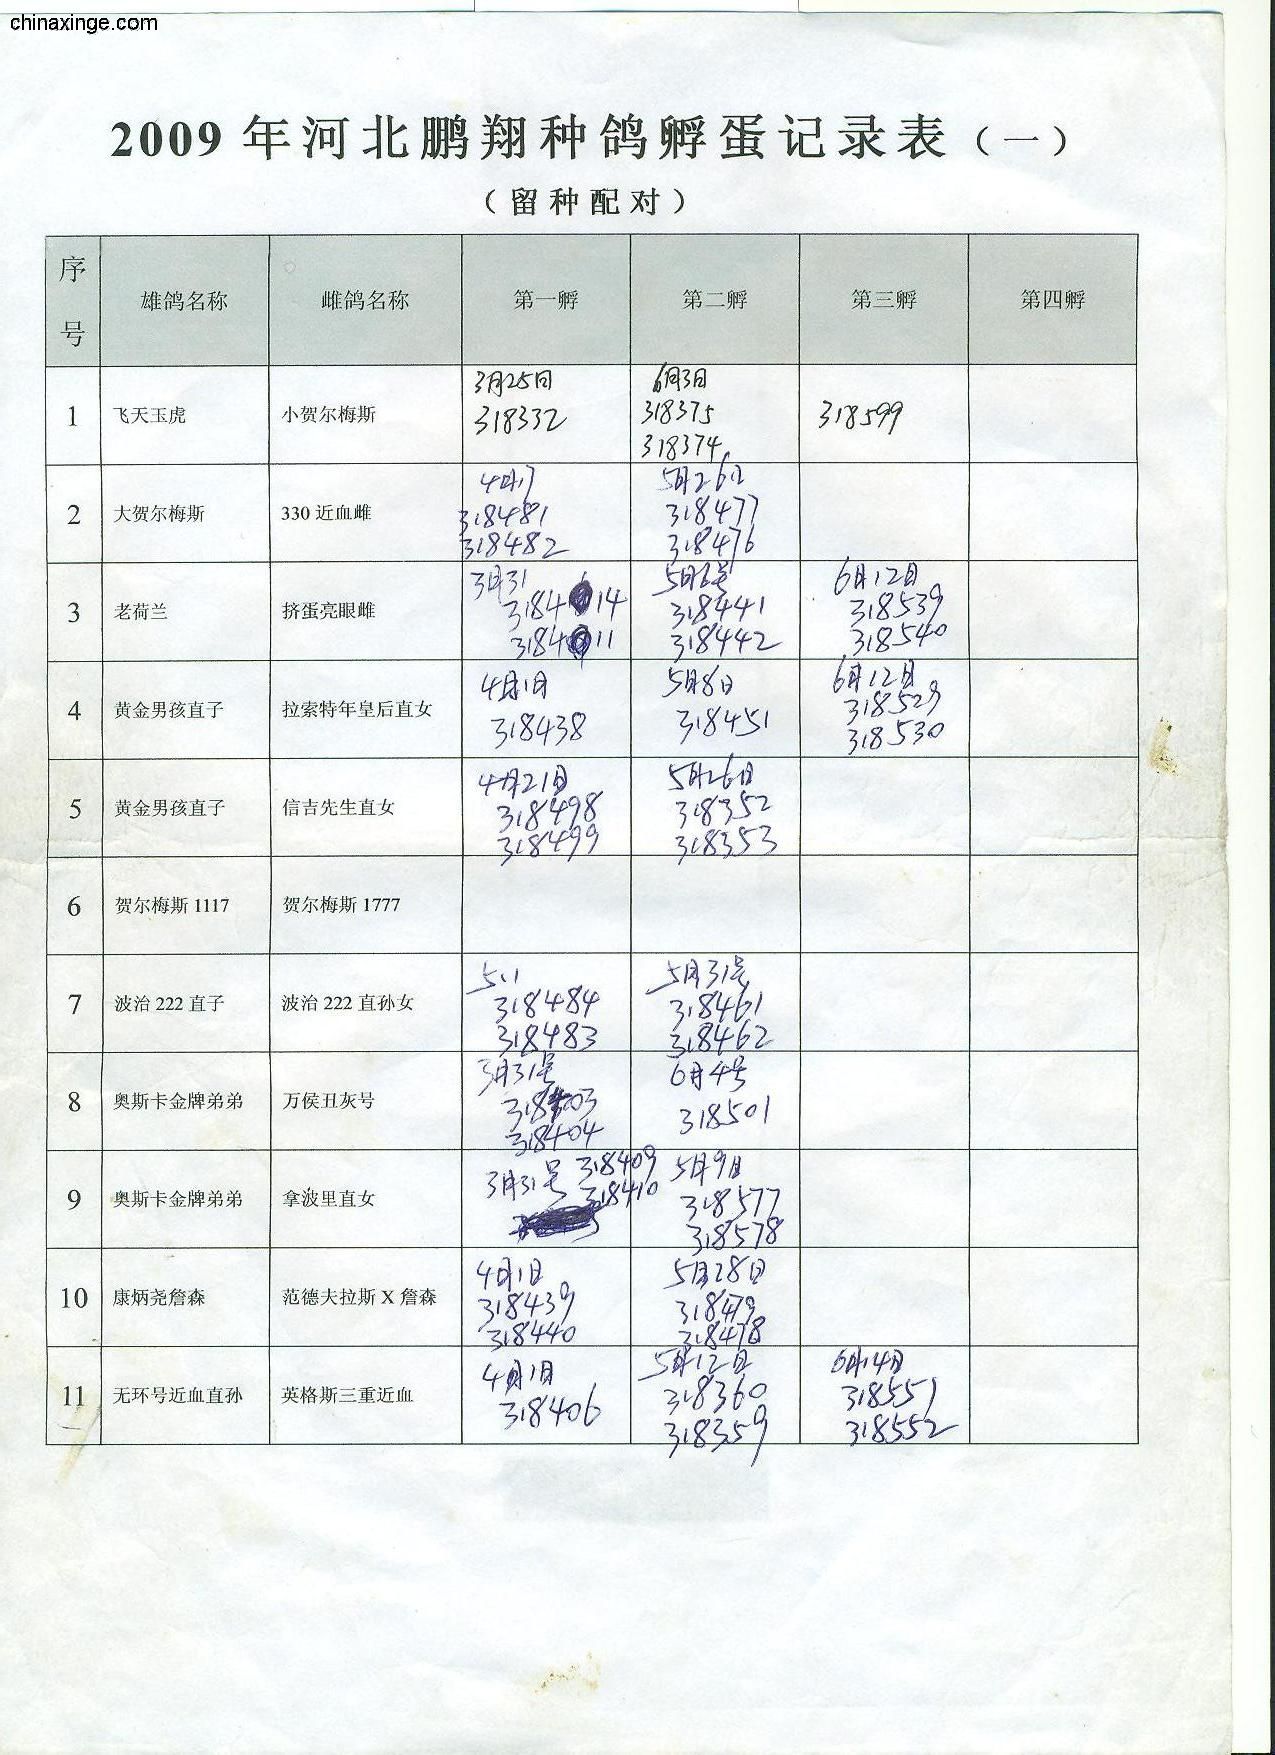 chinaxinge.com
2009 年河北鹏翔种鸽孵蛋记录表（一）
（留种配对）
序号 雄鸽名称 雌鸽名称 第一孵 第二孵 第三孵 第四孵
1 飞天玉虎 小贺尔梅斯
3月25日
318332
6月3日
318375
318374
318599
2 大贺尔梅斯 330 近血雌
318481
318482
5月26日
318477
318476
3 老荷兰 挤蛋亮眼雌
3月31
318414
318411
5月6号
318441
318442
6月12日
318539
318540
4 黄金男孩直子 拉索特年皇后直女
4月1日
318438
5月8日
318451
6月12日
318529
318530
5 黄金男孩直子 信吉先生直女
4月21日
318498
318499
5月26日
318352
318353
6 贺尔梅斯 1117 贺尔梅斯 1777
7 波治 222 直子 波治 222 直孙女
5.1
318484
318483
5月31号
318461
318462
8 奥斯卡金牌弟弟 万侯丑灰号
3月31号
318403
318404
6月4号
318501
9 奥斯卡金牌弟弟 拿波里直女
3月31号 318409
318410
5月9日
318577
318578
10 康炳尧詹森 范德夫拉斯 X 詹森
4月1日
318439
318440
5月28日
318479
318478
11 无环号近血直孙 英格斯三重近血
4月1日
318406
5月12日
318360
318359
6月14日
318551
318552